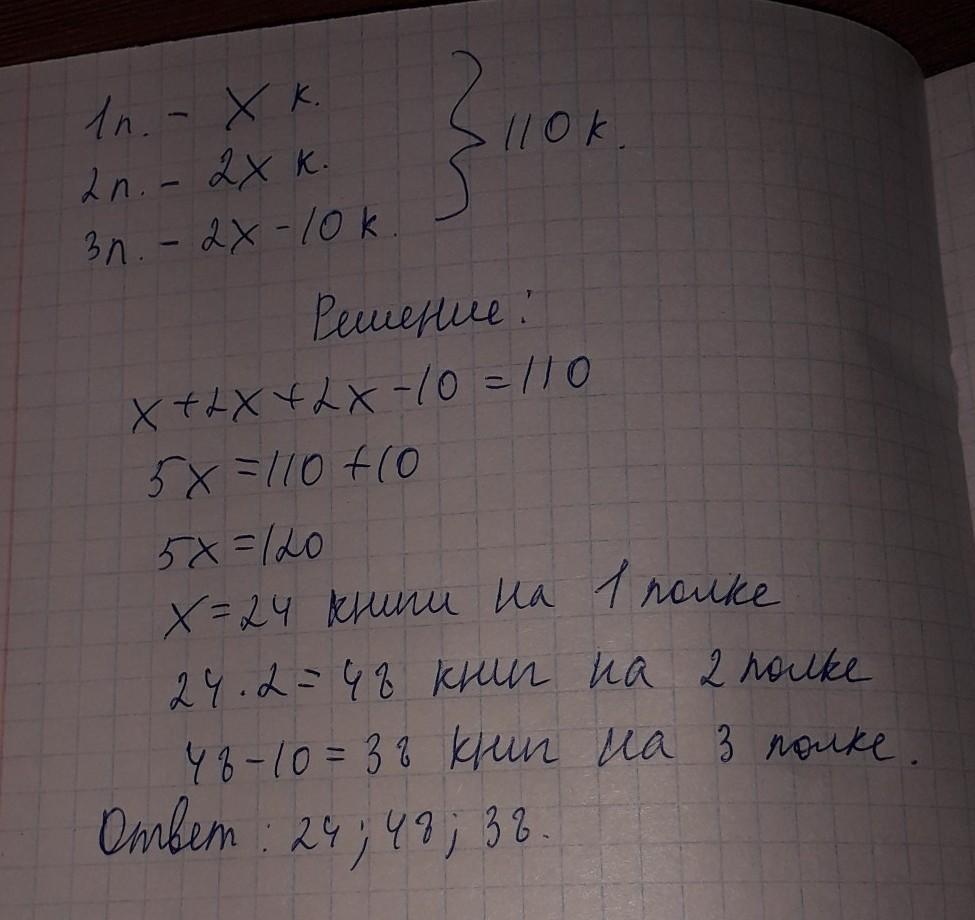 1п. - X к.
2п. - 2X к.
3п. - 2X - 10 к.
} 110 к.
Решение:
x + 2x + 2x - 10 = 110
5x = 110 + 10
5x = 120
X = 24 книги на 1 полке
24 · 2 = 48 книг на 2 полке
48 - 10 = 38 книг на 3 полке.
Ответ: 24; 48; 38.